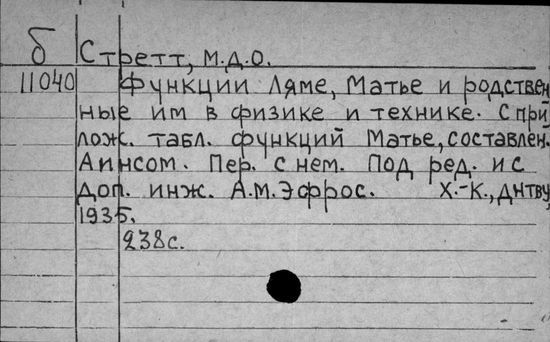 б Стретт, м.д.о.
11040 Функции Ляме, Матье и родствен
ные им в физике и технике. С при
лож. табл. функций Матье, составлен.
Аинсом. Пер. с нем. Под ред. и с
доп. инж. А.М.Эфрос. Х.-К., ДНТВУ,
1935.
238с.